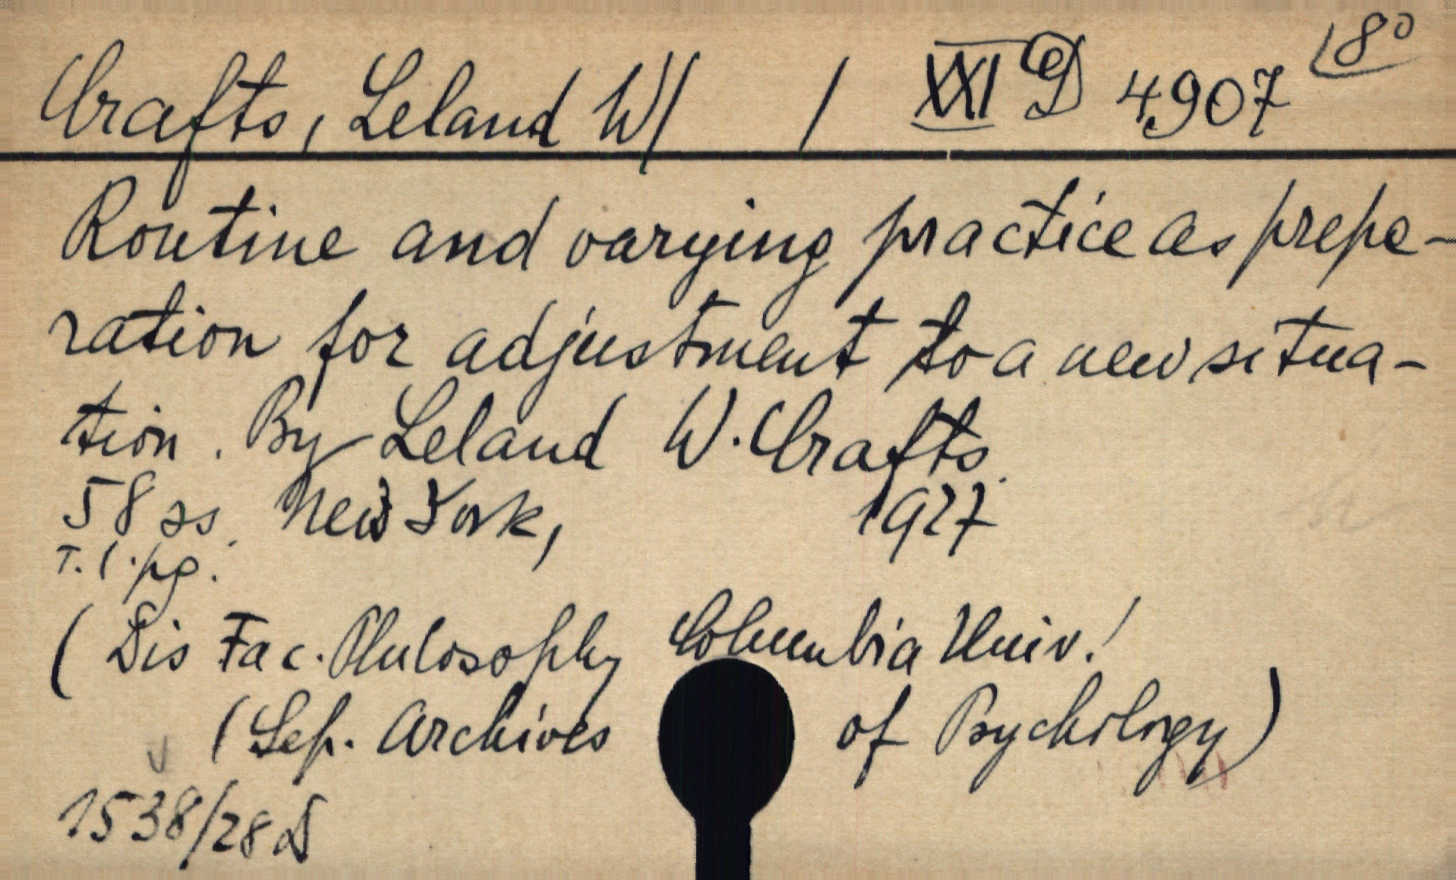 Crafts, Leland W/ / XXI D 4907 8°
Routine and varying practice as prepe-
ration for adjustment to a new situa-
tion. By Leland W. Crafts.
58 ss. New York, 1927
T. l. pg.
(Dis Fac. Philosophy Columbia Univ.!
(Sep. Archives of Psychology)
1538/28 D